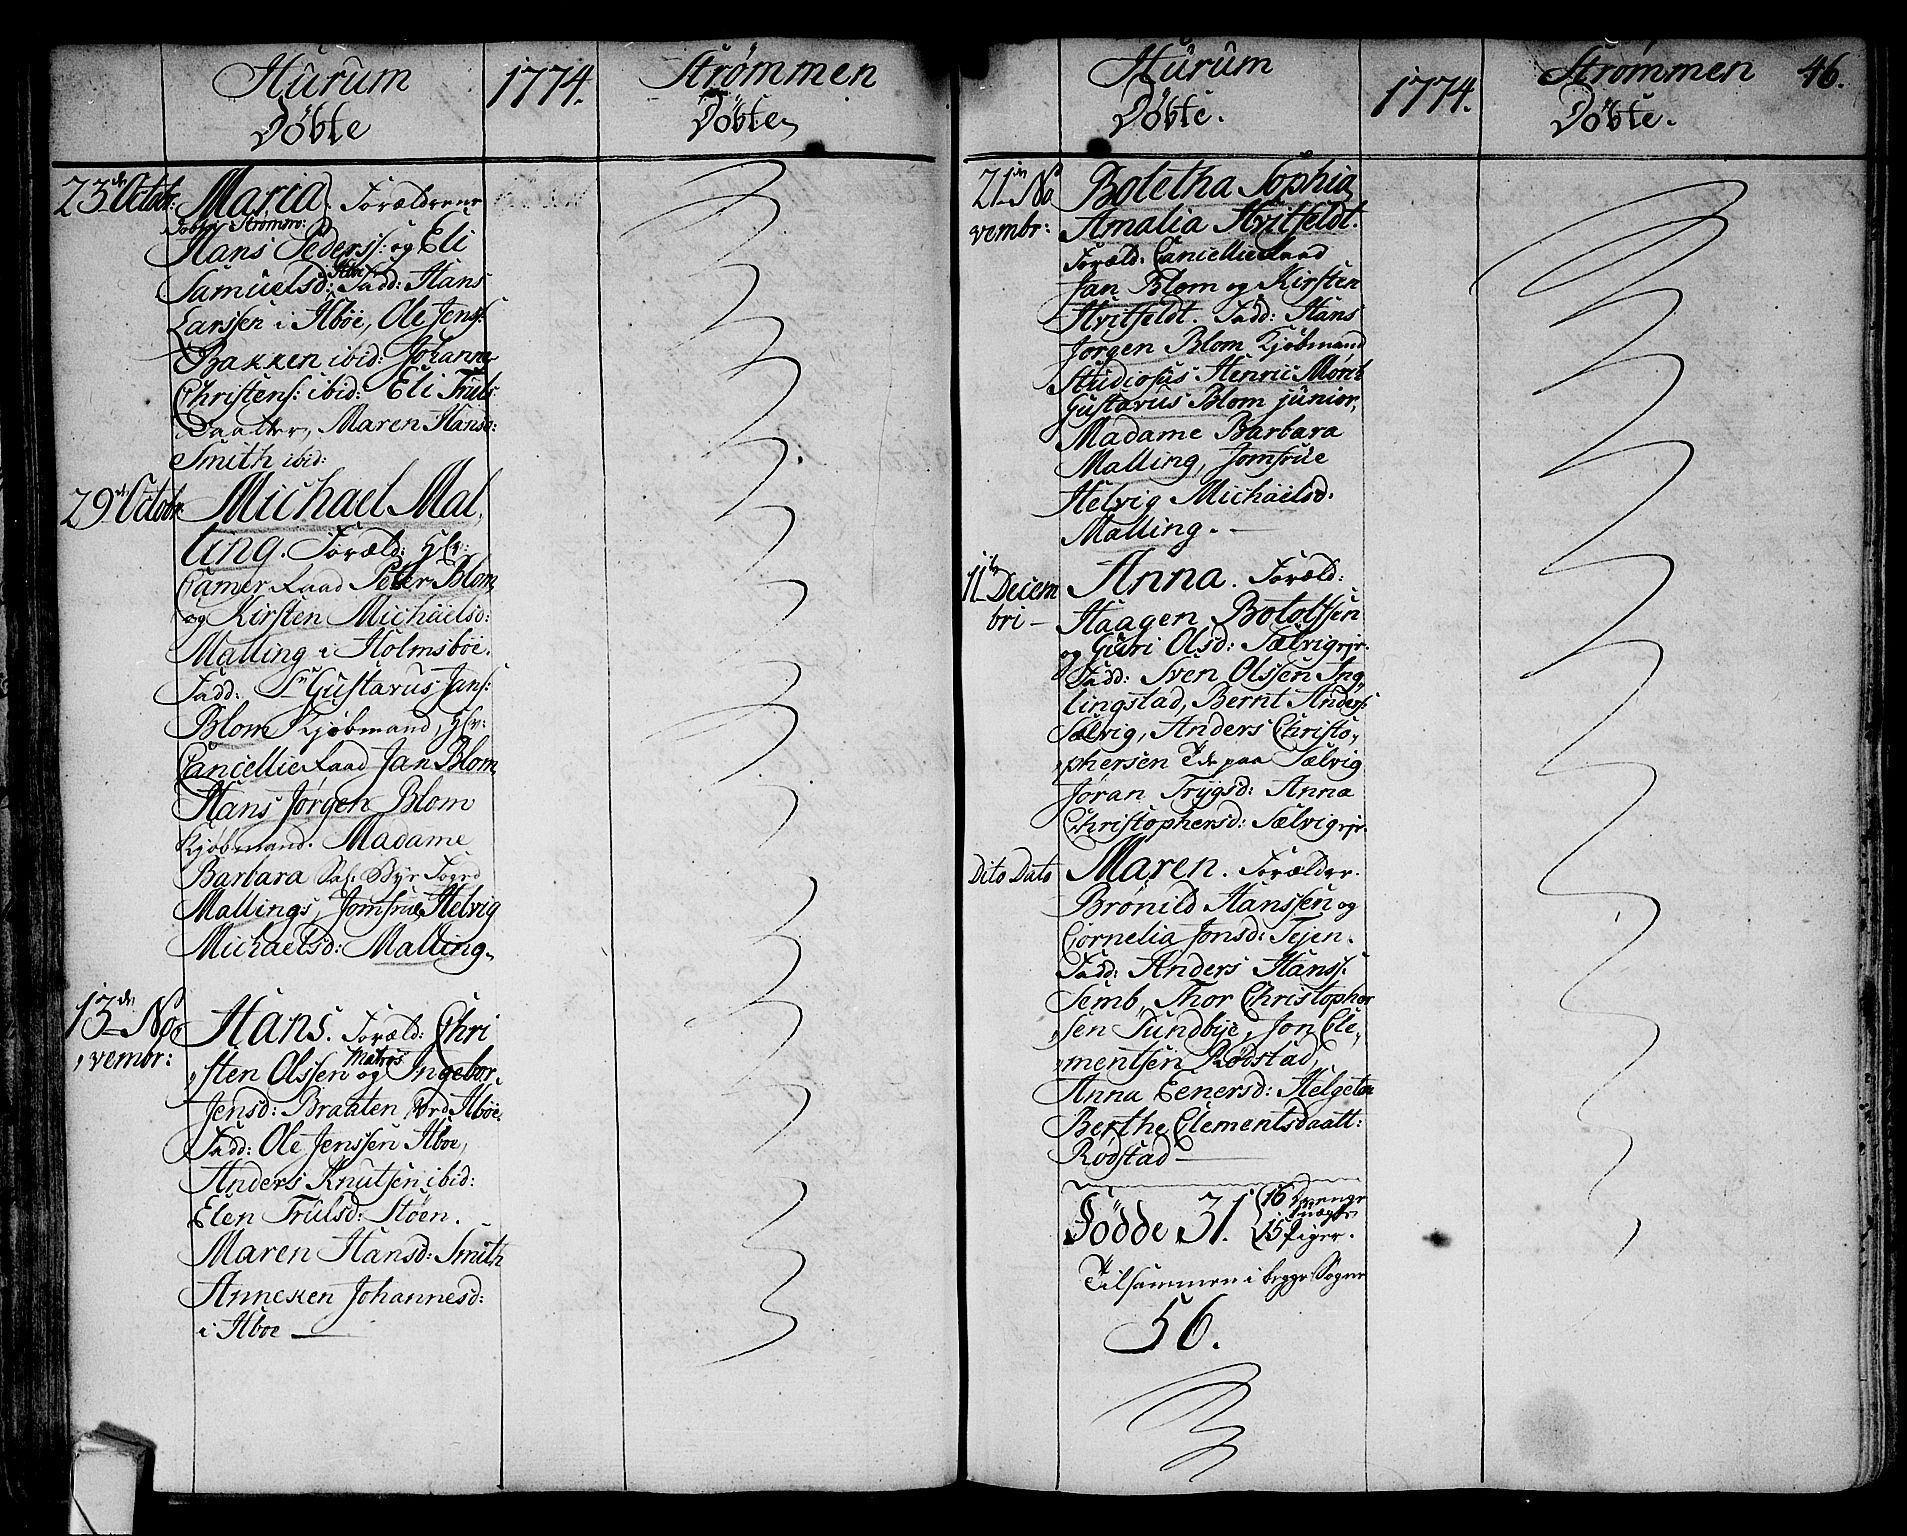 Hurum
Døbte
1774.
Strømmen
Døbte
23de Octobr:
Maria. Forældrene
Tobia Strømso:
Hans Pederss: og Eli
Samuelsd: Fadd: Hans
Larssen i Ilbøe, Ole Jenss:
Bakken ibid: Johanne
Christens: ibid: Eli Truls
Daatter, Maren Hansd:
Smith ibid:
29de Octobr:
Michael Mal,
ling. Foræld: Hr:
Camer Raad Peter Blom,
og Kirsten Michäelsd:
Malling i Holmsbøe.
Fadd: Sr Gustavus Jans:
Blom Kjøbmand, Hr:
Cancellie Raad Jan Blom,
Hans Jørgen Blom
Kjøbmand. Madame
Barbara Sal: Byr Fogd
Mallings, Jomfrue Helvig
Michaelsd: Malling.
13de No
,vembr:
Hans. Foræld: Chri
,sten Olssen Matros og Ingebor,
Jensd: Braaten, Ilbøe.
Fadd: Ole Jenssen Ilboe,
Anders Knutsen ibid:
Elen Trulsd: Støen.
Maren Hansd: Smith
Anneken Johannesd:
i Ilboe
Hurum
Døbte.
1774.
Strømmen
Døbte.
46.
21de No
vembr:
Boletha Sophia
Amalia Hvitfeldt.
Foræld: Cancellie Raad
Jan Blom og Kirsten
Hvitfeldt. Fadd: Hans
Jørgen Blom Kjøbmand
Studiosus Henric Morch
Gustavus Blom junior,
Madame Barbara
Malling, Jomfrue
Helvig Michäelsd:
Malling.
11te Decem
bri
Anna. Foræld:
Haagen Bototssen
og Guri Olsd: Sælvigejr.
Fadd: Sven Olssen Ing,
lingstad, Bernt Anderss:
Sælvig, Anders Christo,
,phersen Ede paa Sælvig
Jøran Trygsd: Anna
Christophersd: Sælvigejr.
Dito Dato
Maren. Forælder.
Brønild Hanssen og
Cornelia Jonsd: Tejen.
Fadd: Anders Hanss:
Semb, Thor Christopher
,sen Tundbye, Jon Cle,
,mentsen Rødstad,
Anna Eenersd: Helgeton
Berthe Clementsdaatt:
Rødstad
Fødde 31. 16 Drenge
15 Piger.
Tilsammen i begge Sogne
56.